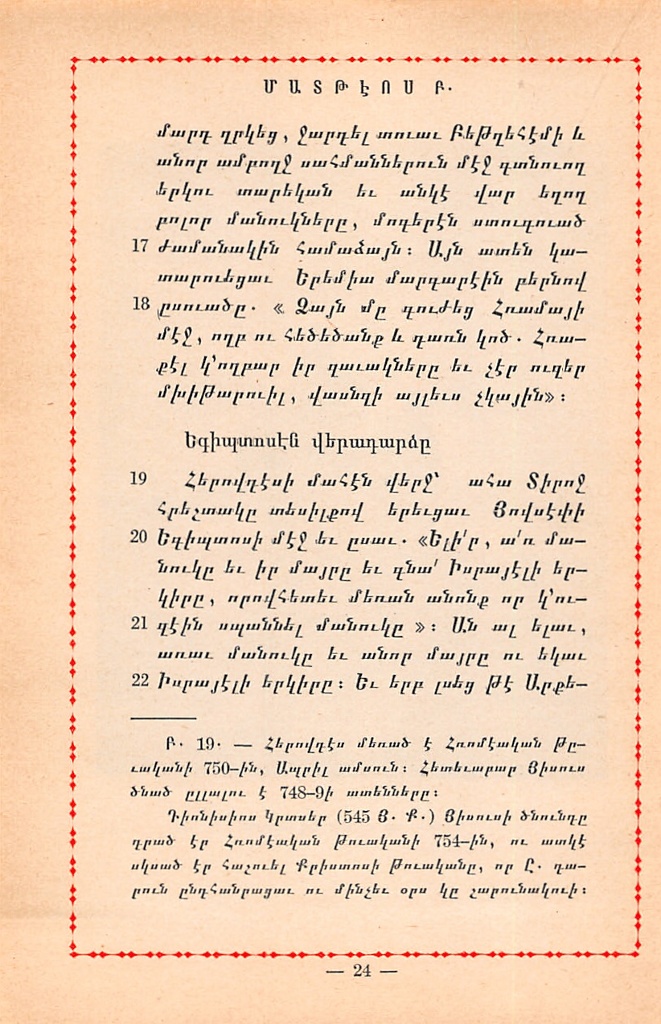 ՄԱՏԹԷՈՍ Բ.
մարդ ղրկեց, ջարդել տուաւ Բեթղեհէմի և
անոր ամբողջ սահմաններուն մէջ գտնուող
երկու տարեկան եւ անկէ վար եղող
բոլոր մանուկները, մոգերէն ստուգուած
17 ժամանակին համաձայն։ Այն ատեն կա—
տարուեցաւ Երեմիա մարգարէին բերնով
18 ըսուածը. « Ձայն մը գուժեց Հռամայի
մէջ, ողբ ու հեծեծանք և դառն կոծ. Հռա—
քէլ կ՚ողբար իր զաւակները եւ չէր ուզեր
մխիթարուիլ, վասնզի այլեւս չկային»։
Եգիպտոսէն վերադարձը
19 Հերովդէսի մահէն վերջ՝ ահա Տիրոջ
հրեշտակը տեսիլքով երեւցաւ Յովսէփի
20 Եգիպտոսի մէջ եւ ըսաւ. «Ելի՛ր, ա՛ռ մա—
նուկը եւ իր մայրը եւ գնա՛ Իսրայէլի եր—
կիրը, որովհետեւ մեռան անոնք որ կ՚ու—
21 զէին սպաննել մանուկը »։ Ան ալ ելաւ,
առաւ մանուկը եւ անոր մայրը ու եկաւ
22 Իսրայէլի երկիրը։ Եւ երբ լսեց թէ Արքե—
Բ. 19. — Հերովդէս մեռած է Հռոմէական Թը—
ւականի 750–ին, Ապրիլ ամսուն։ Հետեւաբար Յիսուս
ծնած ըլլալու է 748–9ի ատենները։
Դիոնիսիոս Կրտսեր (545 Յ. Ք.) Յիսուսի ծնունդը
դրած էր Հռոմէական Թուականի 754–ին, ու ատկէ
սկսած էր հաշուել Քրիստոսի թուականը, որ Ը. դա—
րուն ընդհանրացաւ ու մինչեւ օրս կը շարունակուի։
— 24 —